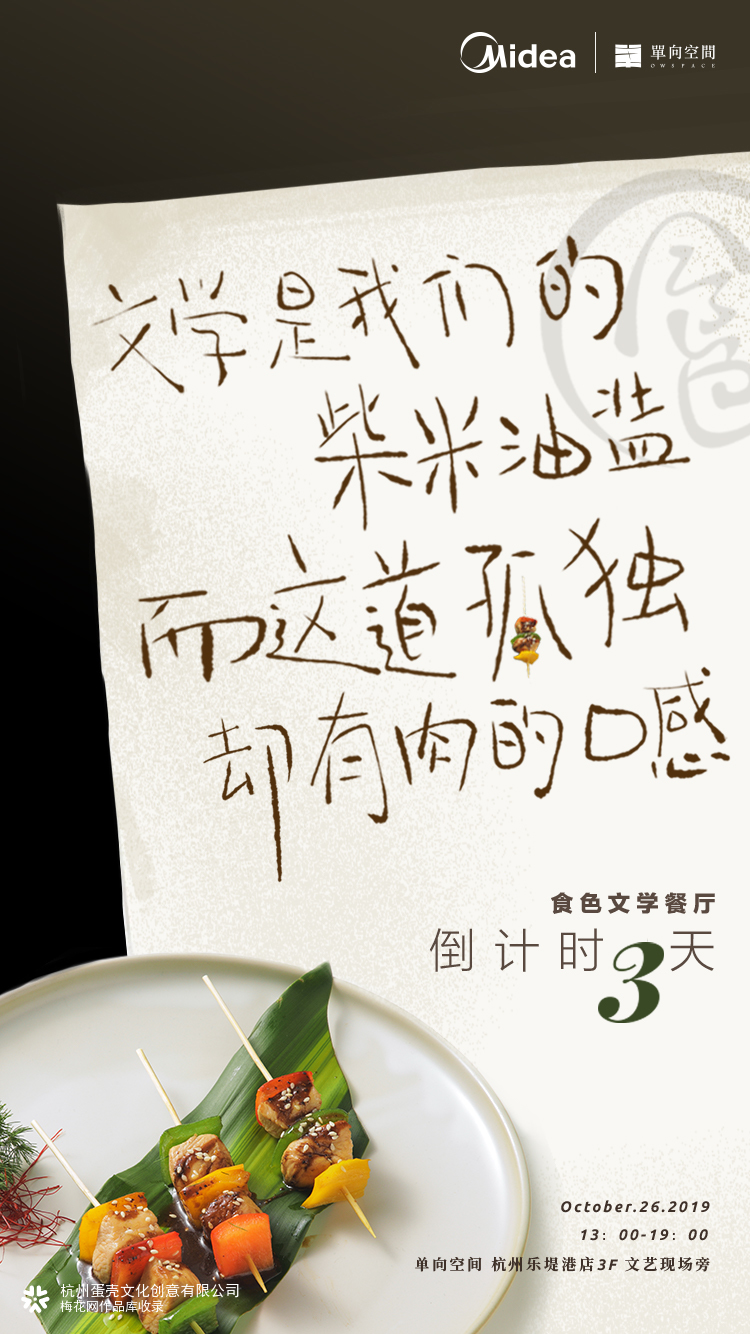 Midea
單向空間
OWSPACE
文学是我们的
柴米油盐
而这道孤独
却有肉的口感
食色文学餐厅
倒计时3天
October.26.2019
13：00-19：00
单向空间 杭州乐堤港店3F 文艺现场旁
杭州蛋壳文化创意有限公司
梅花网作品库收录